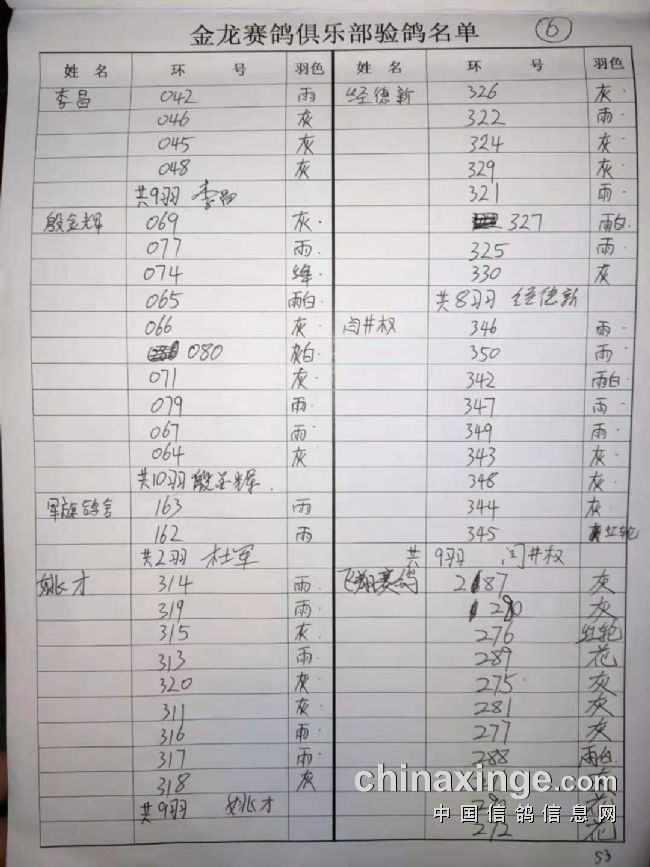 金龙赛鸽俱乐部验鸽名单 6
姓名 环号 羽色 姓名 环号 羽色
李昌 042 雨
046 灰
045 灰
048 灰
共9羽 李昌
殷金辉 069 灰
077 雨
074 绛
065 雨白
066 灰
080 灰白
071 灰
079 雨
067 雨
064 灰
共10羽 殷金辉
军旗鸽舍 163 雨
162 雨
共2羽 杜军
姚才 314 雨
319 雨
315 灰
313 雨
320 灰
311 灰
316 雨
317 雨
318 灰
共9羽 姚才
经德新 326 灰
322 雨
324 灰
329 灰
321 雨
327 雨白
325 雨
330 灰
共8羽 经德新
闫井权 346 雨
350 雨
342 雨白
347 雨
349 雨
343 灰
348 灰
344 灰
345 红轮
共9羽 闫井权
飞翔赛鸽 287 灰
280 灰
276 红轮
289 花
275 灰
281 灰
277 灰
288 雨白
272 花
53
chinaxinge.com
中国信鸽信息网